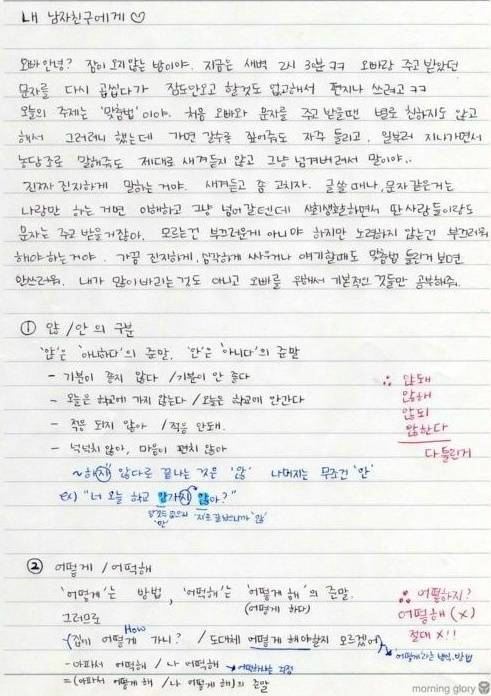 내 남자친구에게 ♡
오빠 안녕? 잠이 오지않는 밤이야. 지금은 새벽 2시 30분 ㅋㅋ 오빠랑 주고 받았던
문자를 다시 곱씹다가 잠도안오고 할것도 없고해서 편지나 쓰려고 ㅋㅋ
오늘의 주제는 '맞춤법' 이야. 처음 오빠와 문자를 주고받을땐 별로 친하지도 않고
해서 그러려니 했는데 가면 갈수록 짚어줘도 자주 틀리고, 일부러 지나가면서
농담조로 말해줘도 제대로 새겨듣지 않고 그냥 넘겨버려서 말이야..
진짜 진지하게 말하는 거야. 새겨듣고 좀 고치자. 글쓸때나, 문자같은거는
나랑만 하는거면 이해하고 그냥 넘어갈텐데 사회생활하면서 딴사람들이랑도
문자는 주고 받을거잖아. 모르는건 부끄러운게 아니야 하지만 노력하지 않는건 부끄러워
해야하는거야. 가끔 진지하게, 심각하게 싸우거나 얘기할때도 맞춤법 틀린거 보면
안쓰러워. 내가 많이바라는것도 아니고 오빠를 위해서 기본적인 것들만 공부해줘.
① 않 / 안 의 구분
'않'은 '아니하다'의 준말, '안'은 '아니다'의 준말
- 기분이 좋지 않다 / 기분이 안 좋다
- 오늘은 학교에 가지 않는다 / 오늘은 학교에 안간다
- 적응 되지 않아 / 적응 안돼.
- 넉넉치 않아, 마음이 편치 않아
~하지 않다로 끝나는 것은 '않' 나머지는 무조건 '안'
ex) "너 오늘 학교 안가지 않아?"
'안' 지로 끝났으니까 '않'
∴ 않돼
않해
않되
않한다
다틀린거
② 어떻게 / 어떡해
'어떻게'는 방법, '어떡해'는 '어떻게 해'의 준말.
(어떻게 하다)
그러므로
How
(집에 어떻게 가니? / 도대체 어떻게 해야할지 모르겠어)
어떻게라는 방식, 방법
- 아파서 어떡해 / 나 어떡해
= (아파서 어떻게 해 / 나 어떻게 해)의 준말
∴ 어떻하지?
어떻해 (X)
절대 X!!
morning glory